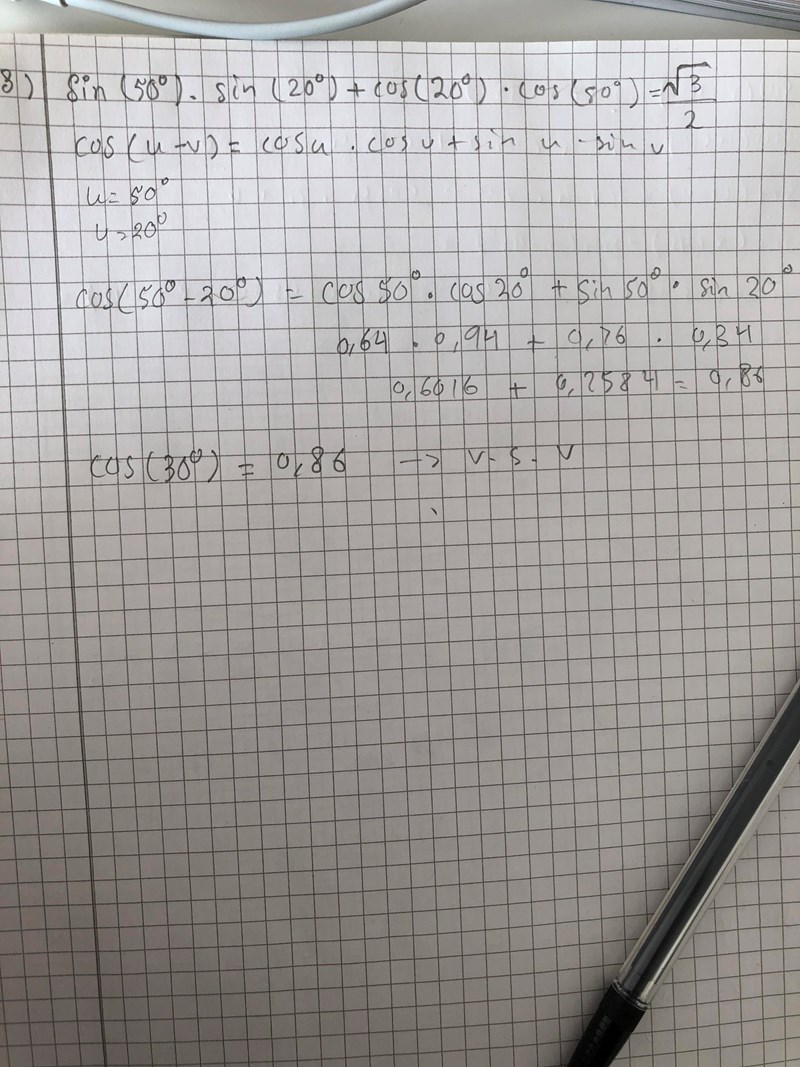 8) sin(50°) · sin(20°) + cos(20°) · cos(50°) = √3/2
cos(u-v) = cosu · cosv + sin u · sin v
u = 50°
v = 20°
cos(50° - 20°) = cos 50° · cos 20° + sin 50° · sin 20°
0,64 · 0,94 + 0,76 · 0,34
0,6016 + 0,2584 = 0,86
cos(30°) = 0,86 → V. S. V